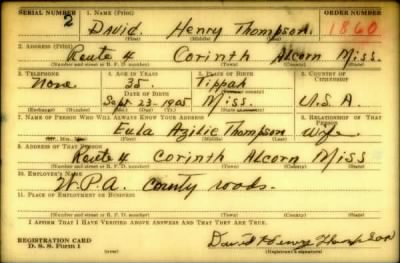 SERIAL NUMBER 1. NAME (Print) ORDER NUMBER
2 David Henry Thompson 1860
(First) (Middle) (Last)
2. ADDRESS (Print)
Route 4 Corinth Alcorn Miss.
(Number and street or R. F. D. number) (Town) (County) (State)
3. TELEPHONE 4. AGE IN YEARS 5. PLACE OF BIRTH 6. COUNTRY OF CITIZENSHIP
None 35 Tippah
DATE OF BIRTH (Town or county)
Sept. 23-1905 Miss. U.S.A
(Exchange) (Number) (Mo.) (Day) (Yr.) (State or country)
7. NAME OF PERSON WHO WILL ALWAYS KNOW YOUR ADDRESS 8. RELATIONSHIP OF THAT PERSON
Eula Azilie Thompson Wife
(Mr., Mrs., Miss) (First) (Middle) (Last)
9. ADDRESS OF THAT PERSON
Route 4 Corinth Alcorn Miss
(Number and street or R. F. D. number) (Town) (County) (State)
10. EMPLOYER'S NAME
W.P.A. County roads.
11. PLACE OF EMPLOYMENT OR BUSINESS
(Number and street or R. F. D. number) (Town) (County) (State)
I AFFIRM THAT I HAVE VERIFIED ABOVE ANSWERS AND THAT THEY ARE TRUE.
REGISTRATION CARD
D. S. S. Form 1 David Henry Thompson